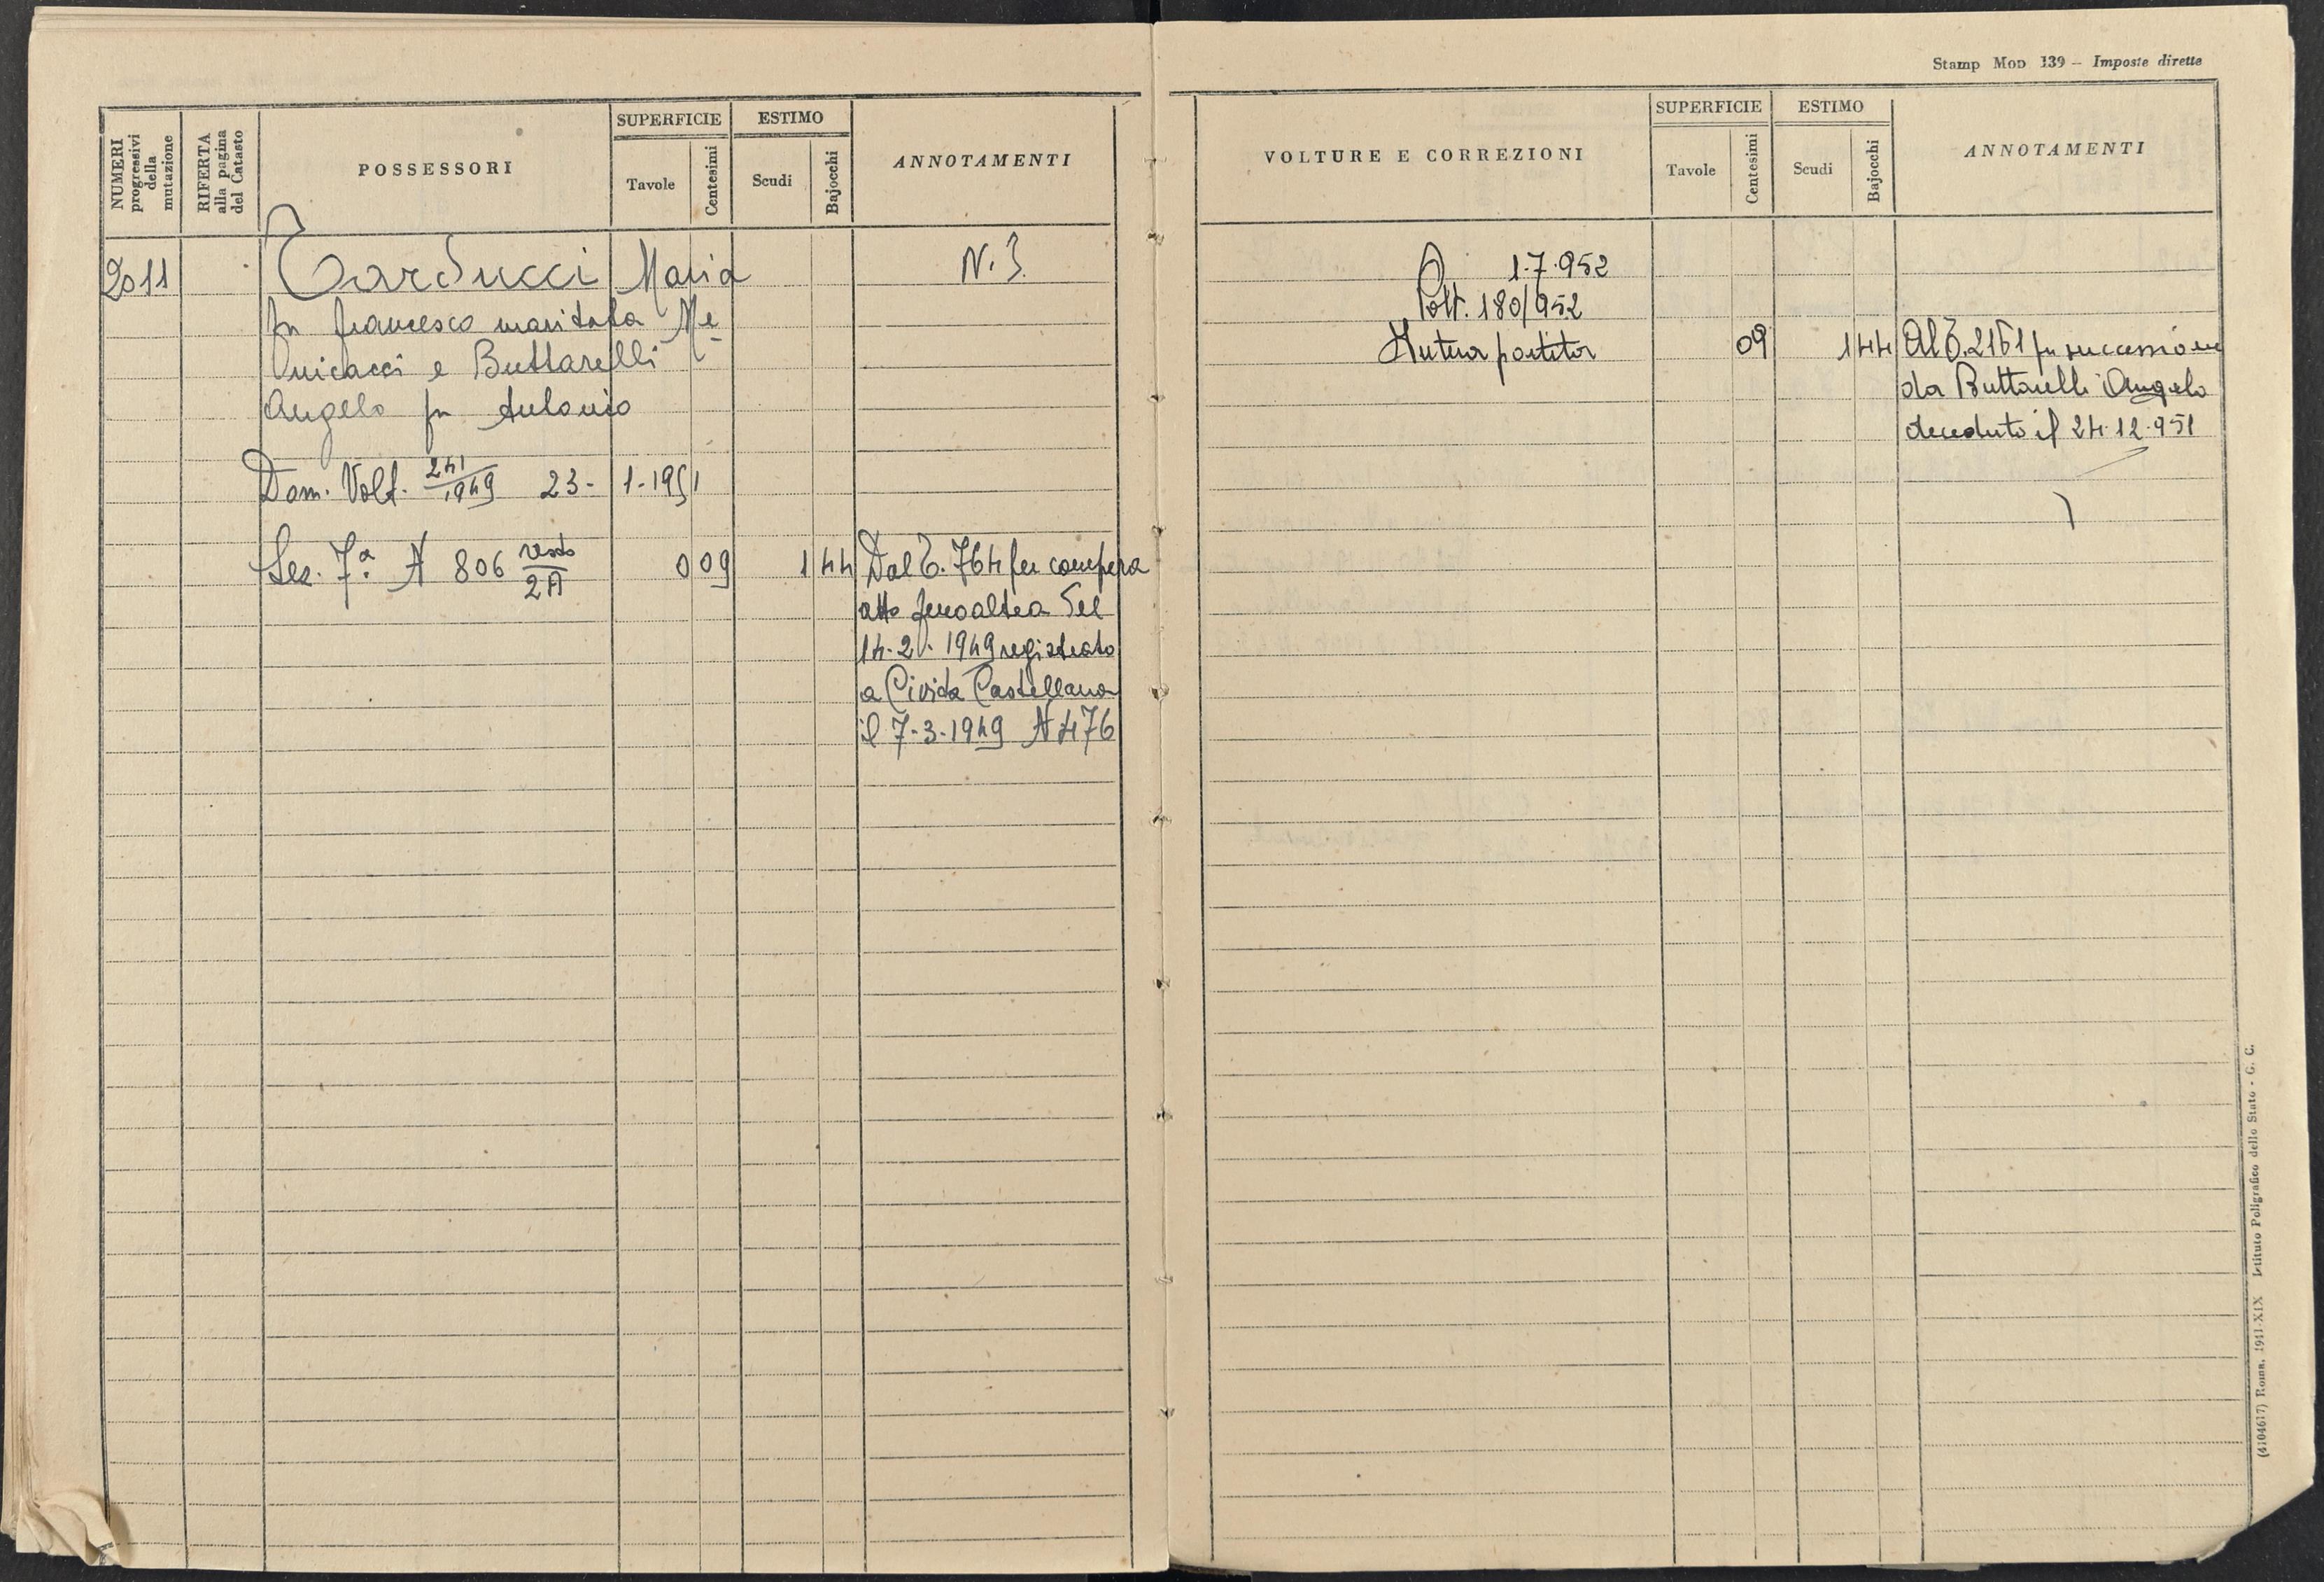 NUMERI progressivi della mutazione
RIFERTA alla pagina del Catasto
POSSESSORI
SUPERFICIE
Tavole
Centesimi
ESTIMO
Scudi
Bajocchi
ANNOTAMENTI
2011
Carducci Maria
N. 3.
fu Francesco maritata Me
nicacci e Buttarelli
Angelo fu Antonio
Dom. Volt. 241/1949 23-1-1951
Sez. 7ª A 806 resto/2A 0 09 1 44 Dal T. 764 per compera
atto
del
14-2-1949 registrato
a Civita Castellana
il 7-3-1949 N 476
Stamp Mod 139 – Imposte dirette
VOLTURE E CORREZIONI
SUPERFICIE
Tavole
Centesimi
ESTIMO
Scudi
Bajocchi
ANNOTAMENTI
1.7.952
Volt. 180/952
Intera partita 09 1 44 Al T. 2161 per successione
da Buttarelli Angelo
deceduto il 24.12.951
(4104617) Roma, 1941-XIX Istituto Poligrafico dello Stato - G. C.